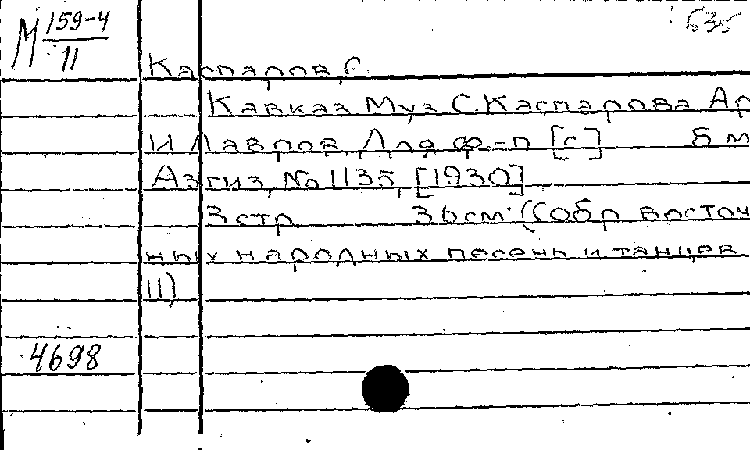 М 159-4
11
635
Каспаров, С.
Кавказ Муз С. Каспарова Ар
И Лавров Для ф-п [с] Б м
Азгиз, № 1135, [1930]
3 стр 36 см (Собр восточ
ных народных песень и танцев
11)
4698